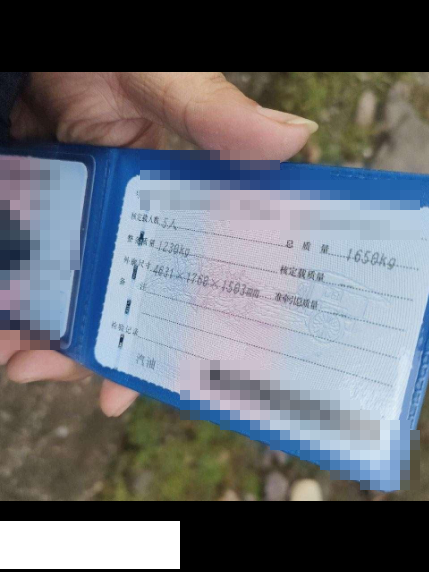 核定载人数 5人 总质量 1650kg
整备质量 1230kg 核定载质量
外廓尺寸 4631×1760×1503 准牵引总质量
备注
检验记录
汽油